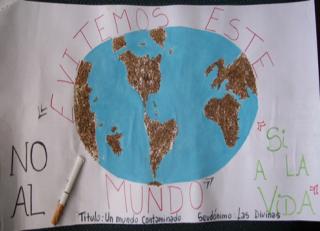 "EVITEMOS ESTE
MUNDO"
NO
AL
"Si
A LA
ViDA"
Titulo: Un mundo contaminado Seudónimo Las Divinas